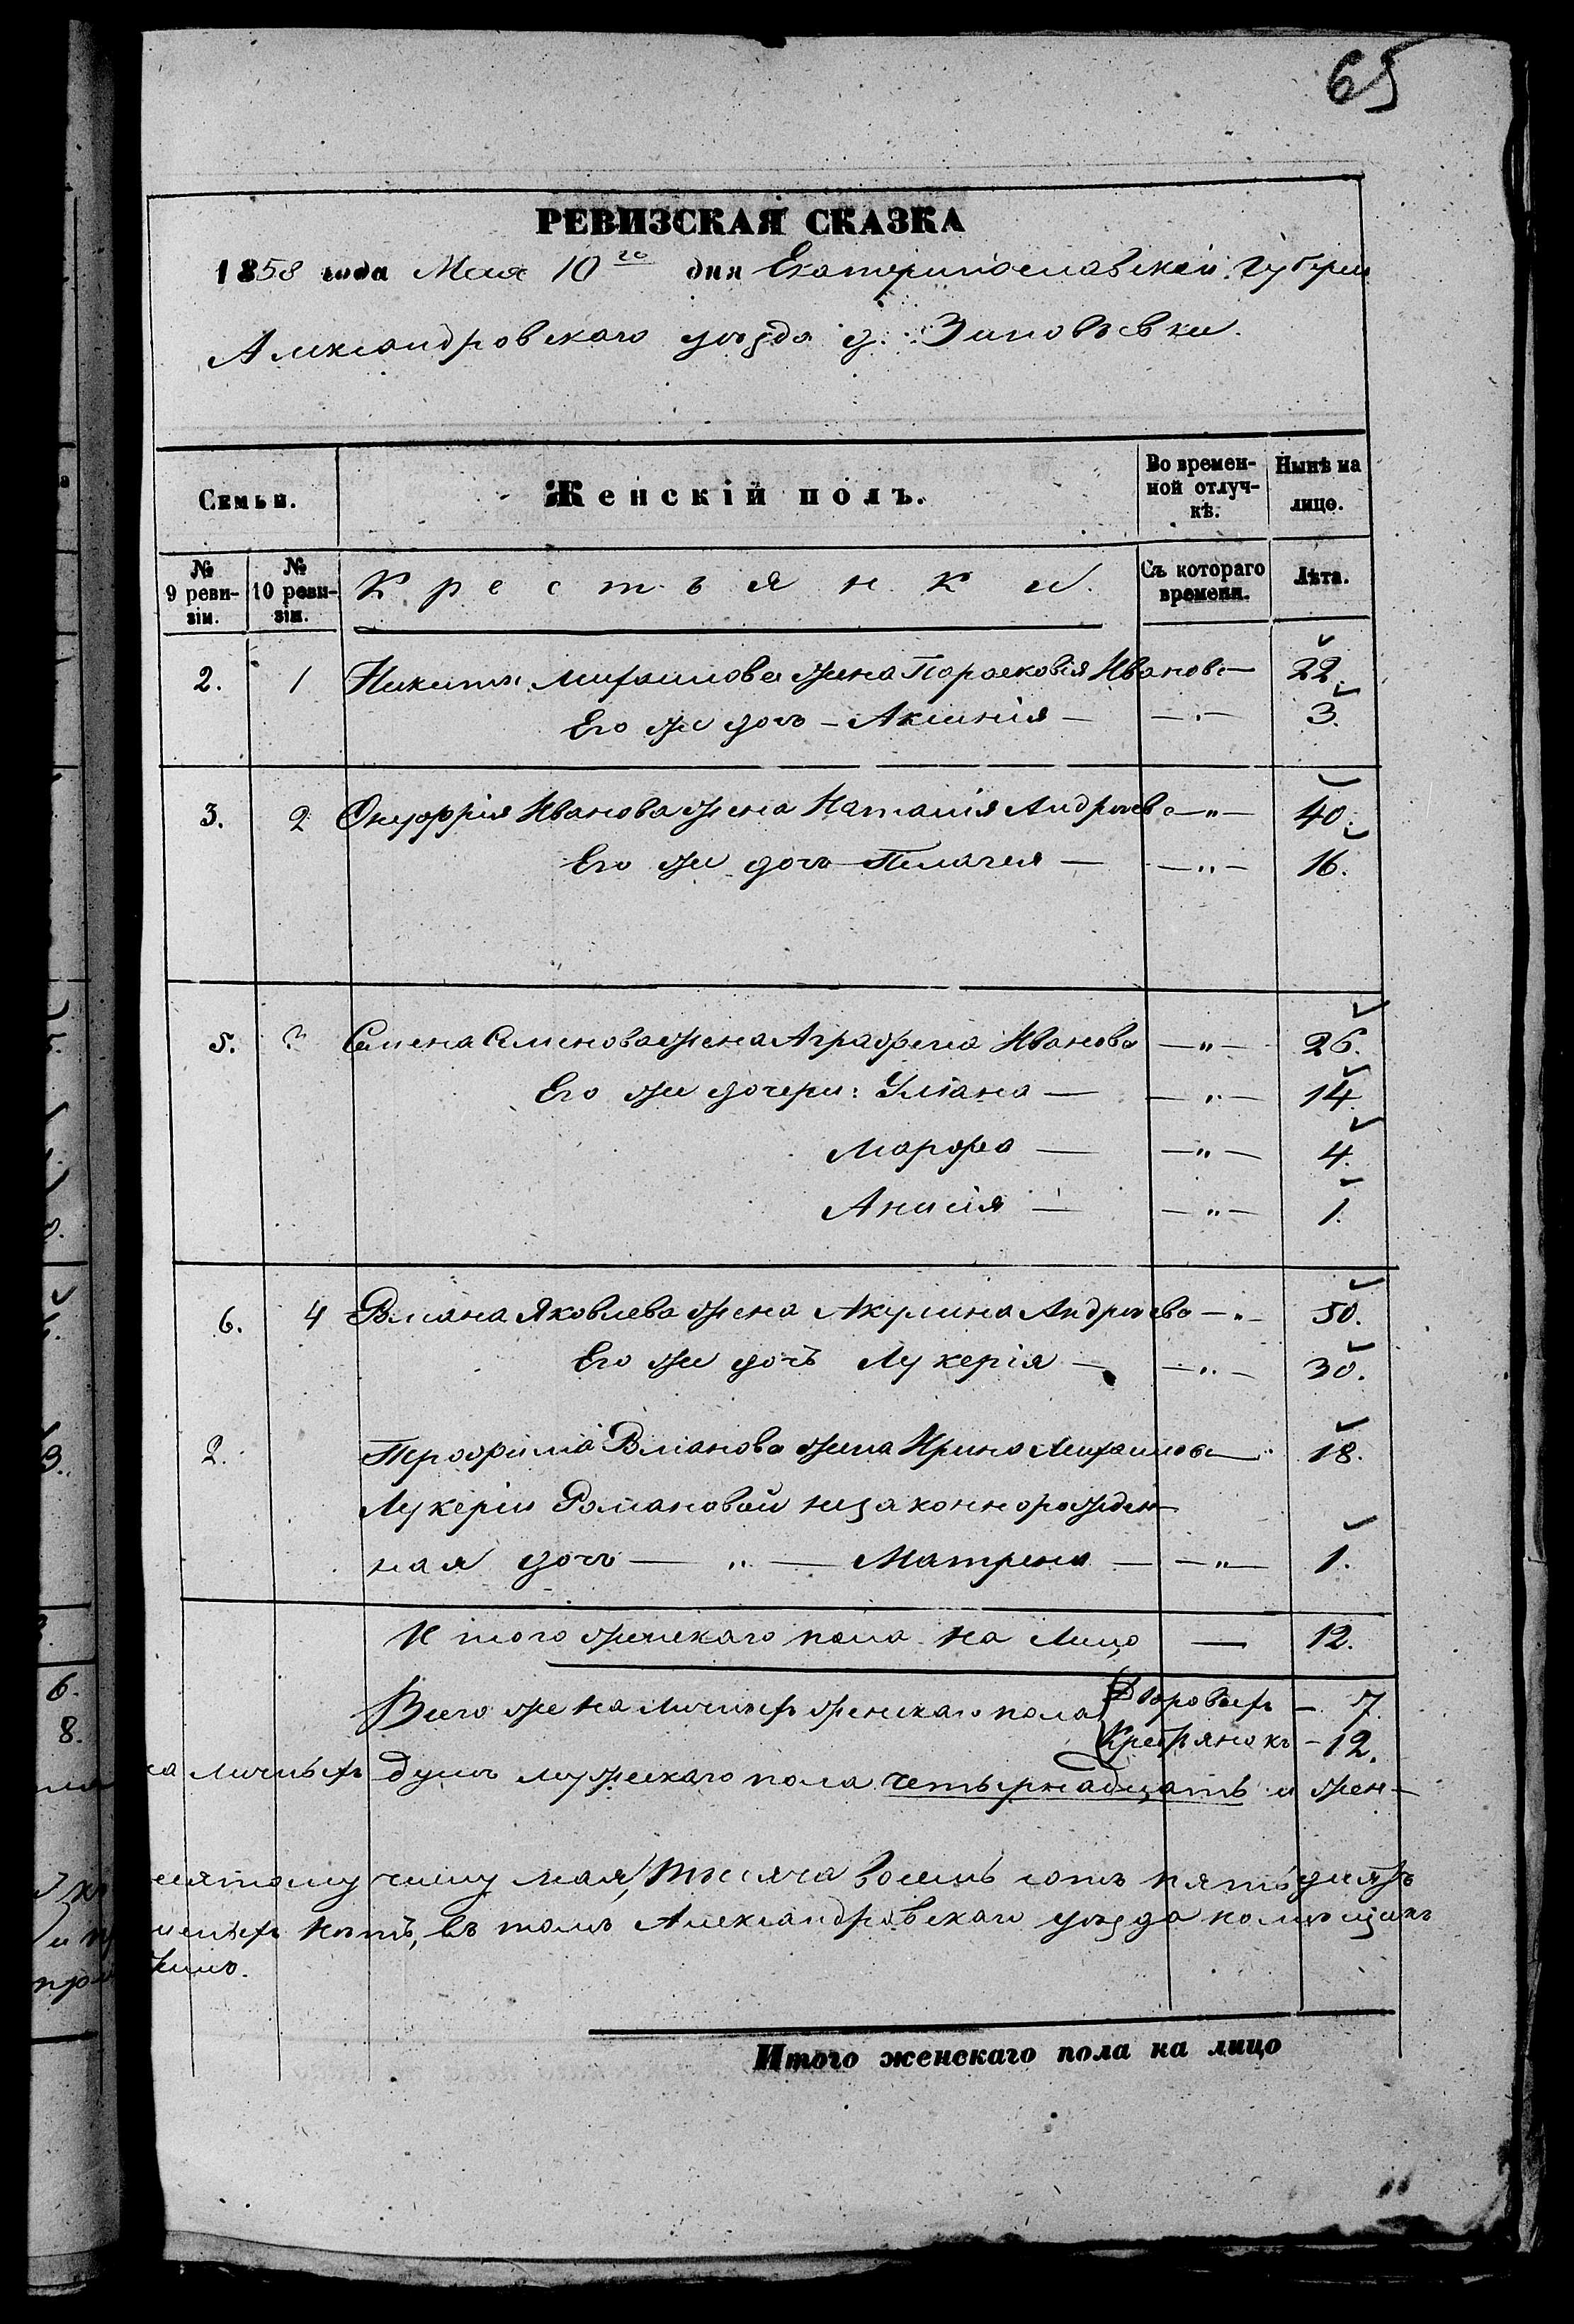 65
РЕВИЗСКАЯ СКАЗКА
1858 года Мая 10го дня Екатеринославской Губерніи
Александровскаго уѣзда д. Зиновьевки.
Семьи. Женскій полъ. Во времен-ной отлуч-кѣ. Нынѣ на лицо.
№ 9 реви-зіи. № 10 реви-зіи. Крестьянки. Съ котораго времени. Лѣта.
2. 1 Никиты Михайлова жена Парасковія Иванова — 22.
Его же дочь – Аксинія — — . — 3.
3. 2 Онуфрія Иванова жена Наталія Андреева — „ — 40.
Его же дочь Пелагея — — „ — 16.
5. 3 Семена Семенова жена Аграфена Иванова — „ — 26.
Его же дочери: Уліана — — „ — 14.
Марфа — — „ — 4.
Анисія — — „ — 1.
6. 4 Романа Яковлева жена Акулина Андреева — „ — 50.
Его же дочъ Лукерія — — „ — 30.
2. Романова жена Ирина Михайлова — „ 18.
Лукеріи Романовой незаконнорожден-
ная дочь — „ — Матрена — — „ — 1.
Итого женскаго пола на лицо — 12.
Всего же наличныхъ женскаго пола Дворовыхъ – 7.
Крестьянокъ – 12.
наличныхъ душъ мужескаго пола четырнадцать и жен-
числу мая, тысяча восемь сотъ пятьдесятъ
нѣтъ, въ томъ Александровскаго уѣзда помѣщикъ
Итого женскаго пола на лицо